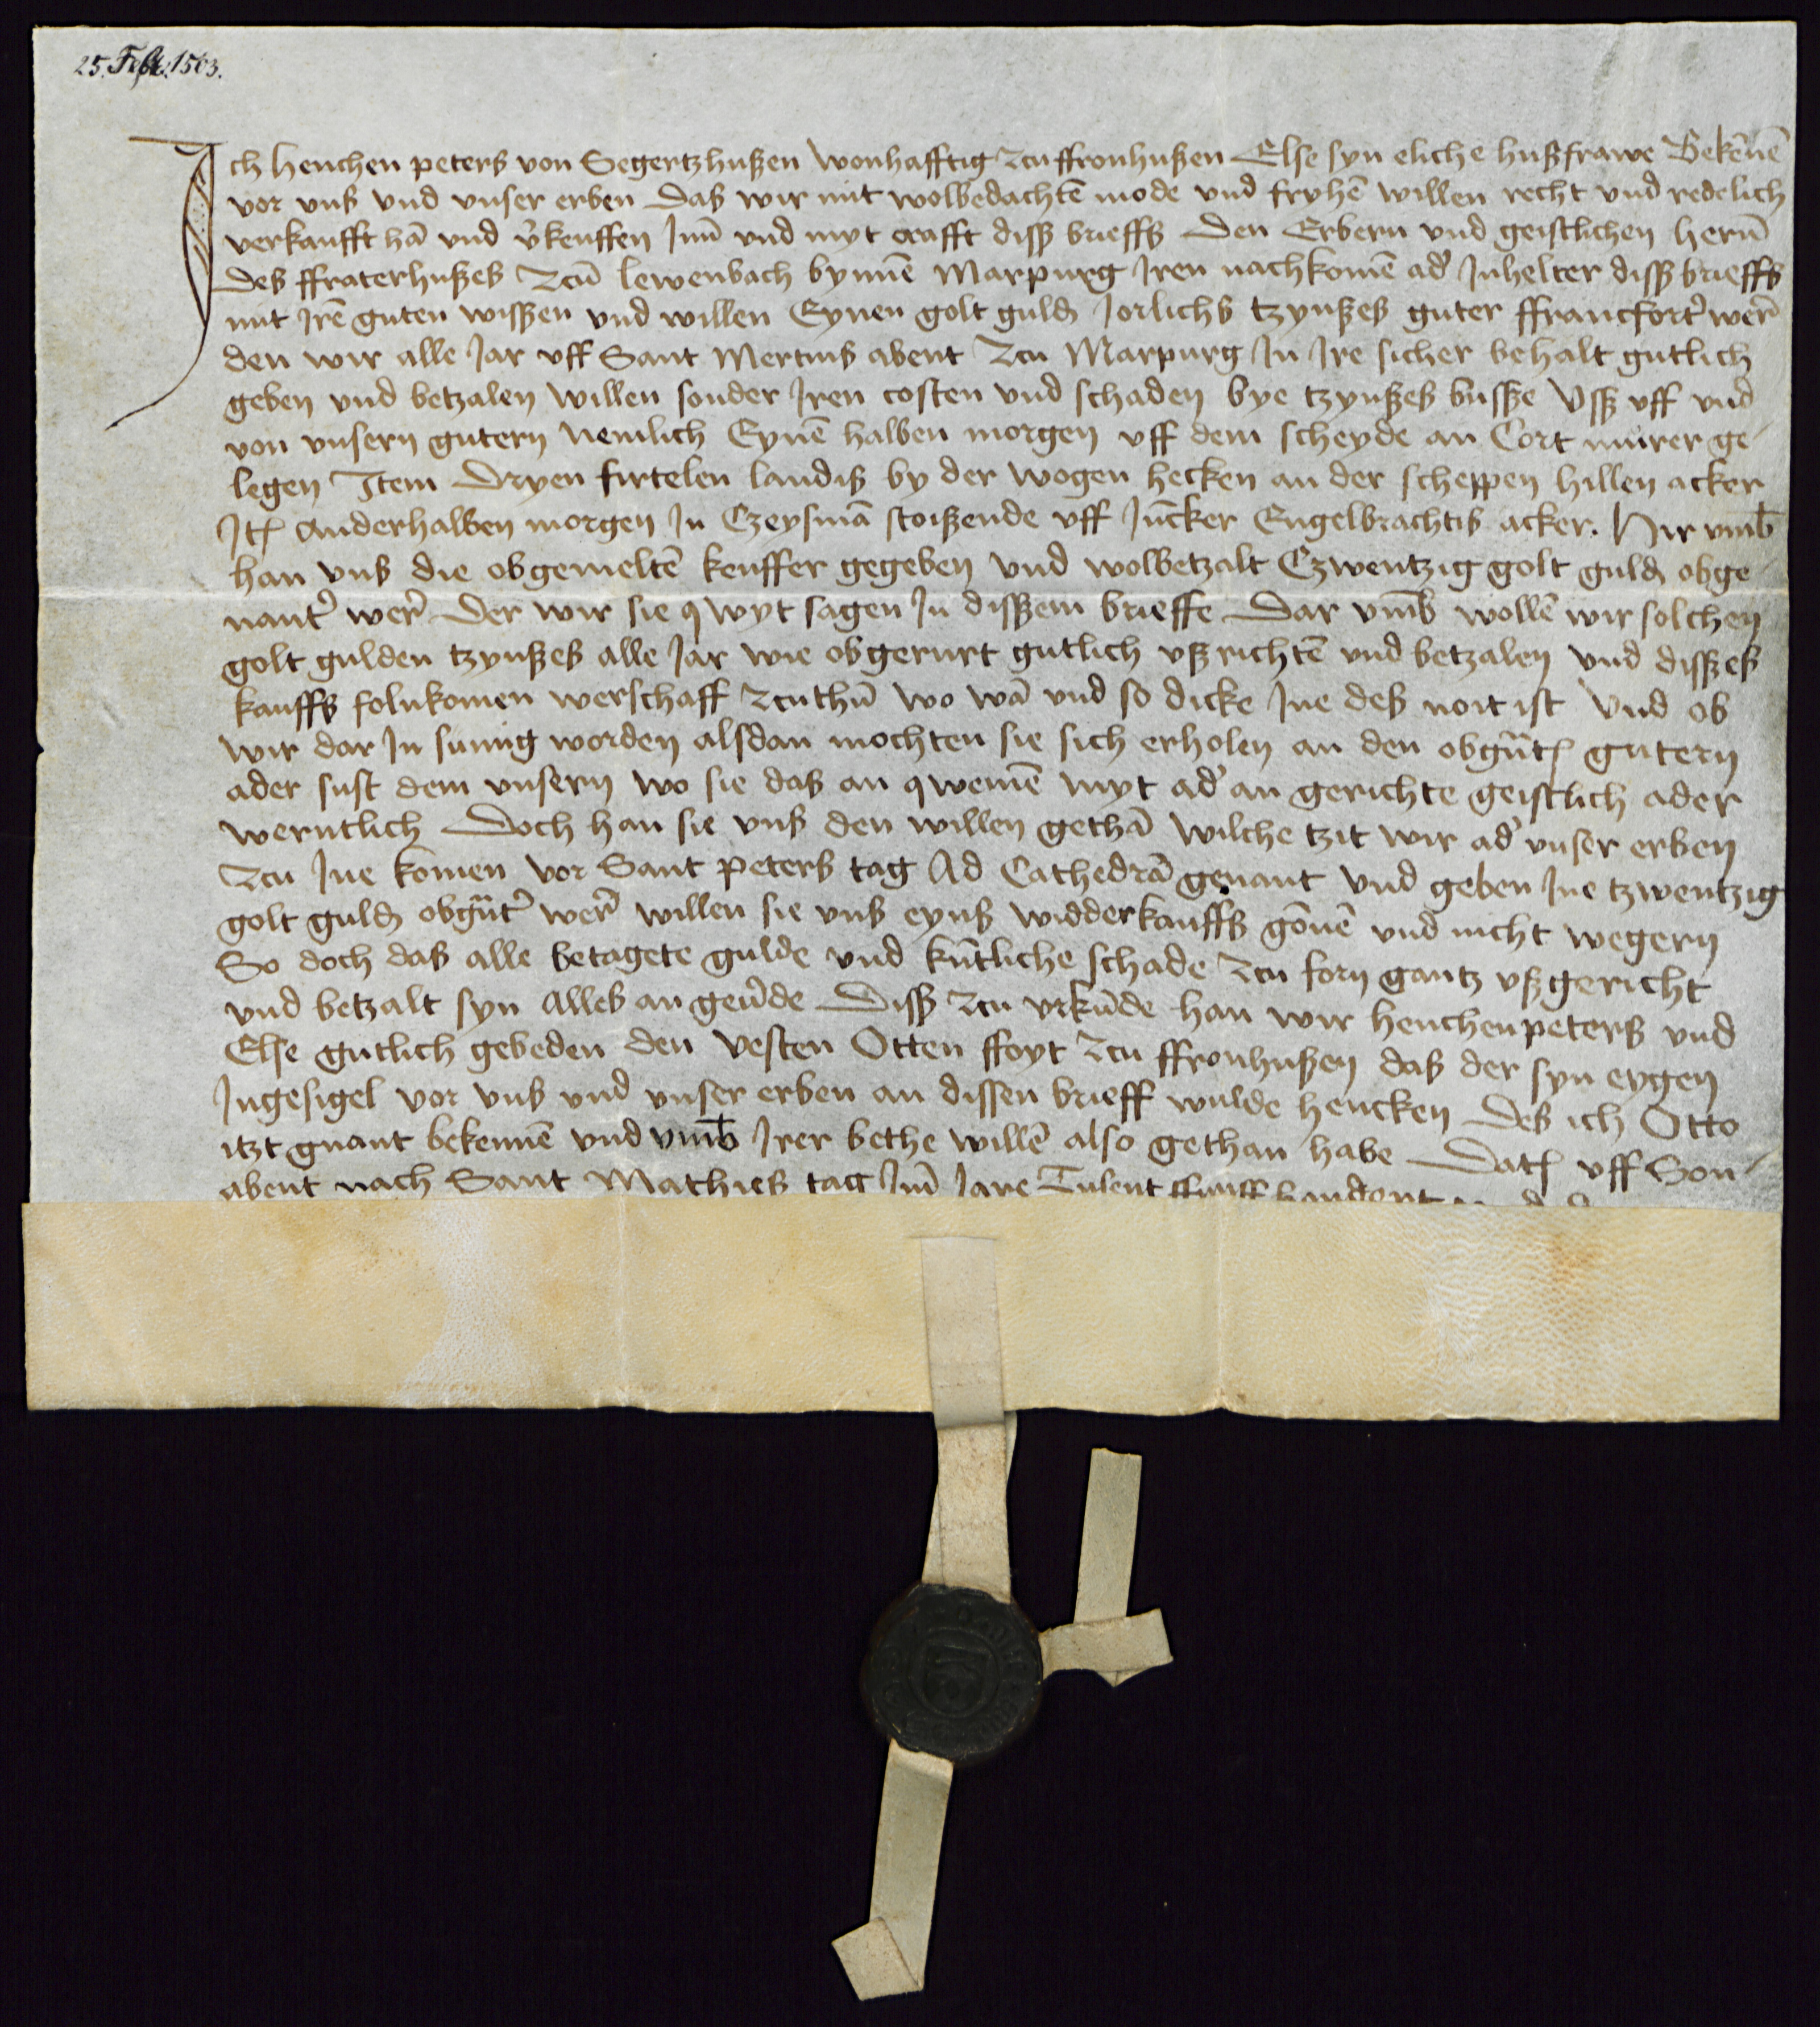 25. Febr. 1503.
Ich Henchen peters von Segertzhußen wonhafftig zcu ffronhußen Else syn eliche hußfrawe Bekēnē
vor vnß vnd vnser erben Daß wir mit wolbedachtē mode vnd fryhē willen recht vnd redelich
verkaufft hā vnd v̓keuffen Jnn̄ vnd myt crafft diss brieffs Den Erbern vnd geistlichen herrn̄
Des ffraterhußes Zcū lewenbach bynnē Marpurg Jren nachkomē ad̓ Jnhelter diss brieffs
mit Jrē guten wissen vnd willen Eynen golt guldꝭ Jorlichs tzynßes guter ffrancfort̓ wer̄
den wir alle Jar vff Sant Mertins abent Zcu Marpurg Jn Jre sicher behalt gutlich
geben vnd betzalen willen sonder Jren costen vnd schaden bye tzynßes busse Vss vff vnd
von vnsern gutern Nemlich Eynē halben morgen vff dem scheyde an Cort murer ge-
legen Item Dryen firtelen landiß by der wogen hecken an der scheppen hillen acker
Itꝭ Anderhalben morgen Jn Czeysmā stoißende vff Jūcker Engelbrachtis acker. Hir vmb̄
han vnß die obgemeltē keuffer gegeben vnd wolbetzalt Czwentzig golt guldꝭ obge
nant̓ wer̓ Der wir sie qwyt sagen Jn dissem brieffe Dar vmb̄ wollē wir solchen
golt gulden tzynßes alle Jar wie obgerurt gutlich vßrichtē vnd betzalen Vnd disses
kauffs folnkomen werschaff zcu thū wo wā vnd so dicke Jne deß noit ist Vnd ob
wir dar Jn sumig worden alsdan mochten sie sich erholen an den obgn̄tꝭ gutern
ader sust dem vnsern wo sie daß an qwemē myt ad̓ an gerichte geistlich ader
werntlich Doch han sie vnß den willen gethā wilche tzit wir ad̓ vnser erben
Zcu Jne komen vor Sant peters tag Ad Cathedrā genant Vnd geben Jne tzwentzig
golt guldꝭ obgn̄t̓ wer̓ willen sie vnß eynß widderkauffs gōnē vnd nicht wegern
So doch daß alle betagete gulde vnd kūtliche schade zcu forn gantz vßgericht
vnd betzalt syn Alles an geu̓de Diss zcu vrkūde han wir henchen peters vnd
Else gutlich gebeden den vesten Otten ffoyt zcu ffronhußen daß der syn eygen
Jngesigel vor vnß vnd vnser erben an dissen brieff wulde hencken Deß ich Otto
itzt gnant bekennē vnd vmb̄ Jrer bethe willē also gethan habe Datꝭ vff Son-
abent nach Sant Mathies tag Jm̄ Jare Tusent ffunff hundert